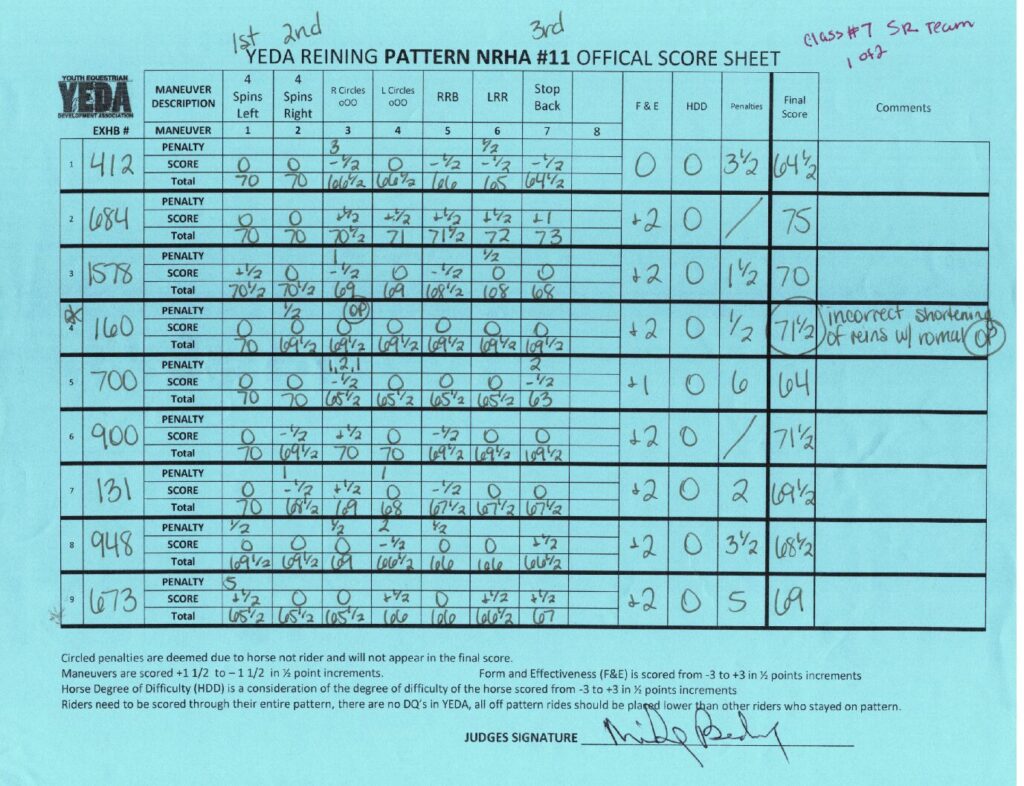 1st 2nd 3rd
Class #7 SR Team
1 of 2
YEDA REINING PATTERN NRHA #11 OFFICAL SCORE SHEET
YOUTH EQUESTRIAN
YEDA
DEVELOPMENT ASSOCIATION
MANEUVER DESCRIPTION 4 Spins Left 4 Spins Right R Circles oOO L Circles oOO RRB LRR Stop Back F & E HDD Penalties Final Score Comments
EXHB # MANEUVER 1 2 3 4 5 6 7 8
PENALTY 3 1/2
1 412 SCORE 0 0 -1/2 0 -1/2 -1/2 -1/2 0 0 3 1/2 64 1/2
Total 70 70 66 1/2 66 1/2 66 65 64 1/2
PENALTY
2 684 SCORE 0 0 +1/2 +1/2 +1/2 +1/2 +1 +2 0 / 75
Total 70 70 70 1/2 71 71 1/2 72 73
PENALTY 1 1/2
3 1578 SCORE +1/2 0 -1/2 0 -1/2 0 0 +2 0 1 1/2 70
Total 70 1/2 70 1/2 69 69 68 1/2 68 68
PENALTY 1/2 OP
4 160 SCORE 0 0 0 0 0 0 0 +2 0 1/2 71 1/2 incorrect shortening of reins w/ romal OP
Total 70 69 1/2 69 1/2 69 1/2 69 1/2 69 1/2 69 1/2
PENALTY 1,2,1 2
5 700 SCORE 0 0 -1/2 0 0 0 -1/2 +1 0 6 64
Total 70 70 65 1/2 65 1/2 65 1/2 65 1/2 63
PENALTY
6 900 SCORE 0 -1/2 +1/2 0 -1/2 0 0 +2 0 / 71 1/2
Total 70 69 1/2 70 70 69 1/2 69 1/2 69 1/2
PENALTY 1 1
7 131 SCORE 0 -1/2 +1/2 0 -1/2 0 0 +2 0 2 69 1/2
Total 70 68 1/2 69 68 67 1/2 67 1/2 67 1/2
PENALTY 1/2 1/2 2 1/2
8 948 SCORE 0 0 0 -1/2 0 0 +1/2 +2 0 3 1/2 68 1/2
Total 69 1/2 69 1/2 69 66 1/2 66 66 66 1/2
PENALTY 5
9 673 SCORE +1/2 0 0 +1/2 0 +1/2 +1/2 +2 0 5 69
Total 65 1/2 65 1/2 65 1/2 66 66 66 1/2 67
Circled penalties are deemed due to horse not rider and will not appear in the final score.
Maneuvers are scored +1 1/2 to – 1 1/2 in ½ point increments. Form and Effectiveness (F&E) is scored from -3 to +3 in ½ points increments
Horse Degree of Difficulty (HDD) is a consideration of the degree of difficulty of the horse scored from -3 to +3 in ½ points increments
Riders need to be scored through their entire pattern, there are no DQ's in YEDA, all off pattern rides should be placed lower than other riders who stayed on pattern.
JUDGES SIGNATURE